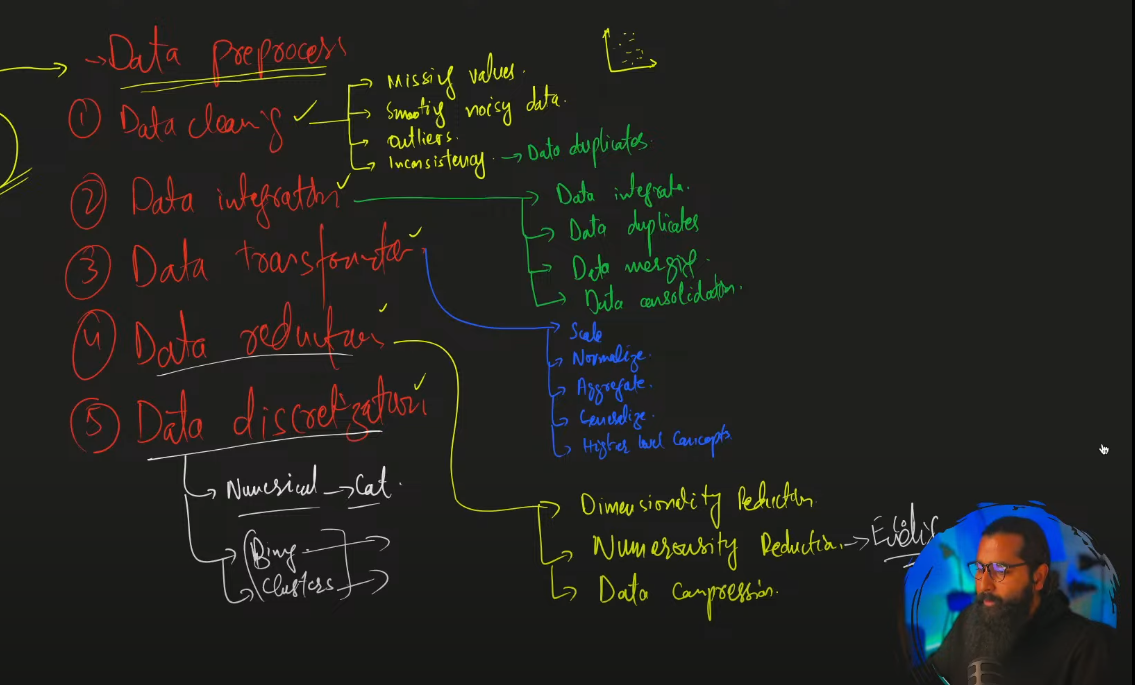 → Data preprocess
① Data cleaning ✓
→ Missing values.
→ Smooting noisy data.
→ Outliers.
→ Inconsistency. → Data duplicates.
② Data integration ✓
→ Data integrate.
→ Data duplicates
→ Data merging.
→ Data consolidation.
③ Data transformation ✓
→ Scale
→ Normalize.
→ Aggregate.
→ Generalize.
→ Higher level Concepts
④ Data reduction ✓
→ Dimensionality Reduction.
→ Numerousity Reduction. →
→ Data compression.
⑤ Data discretization ✓
→ Numerical → Cat.
→ Bing →
→ Clusters →